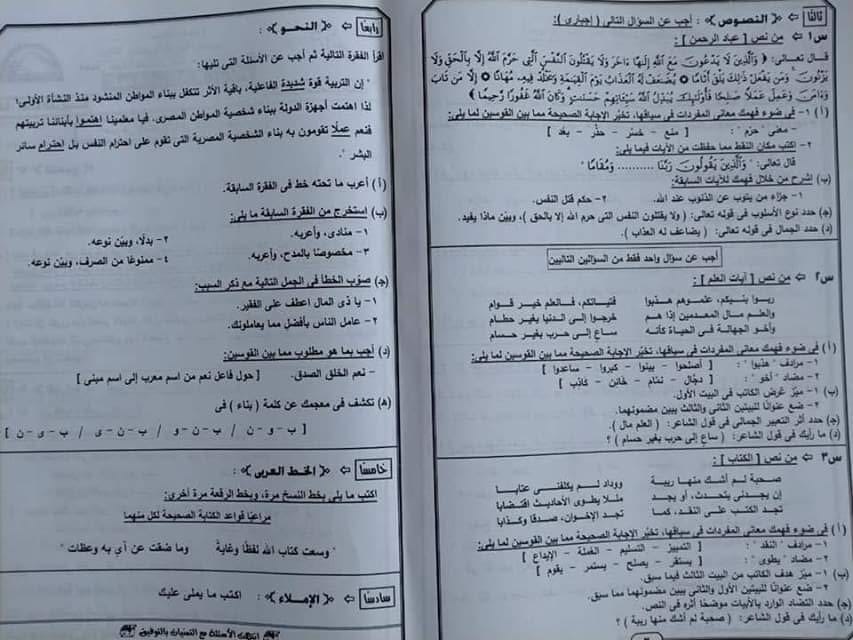 ثالثًا ⇦ ﴿النصوص﴾ : أجب عن السؤال التالى ( إجبارى ) :
س١ ⇦ من نص [ عباد الرحمن ] :
قال تعالى: ﴿ وَالَّذِينَ لَا يَدْعُونَ مَعَ اللَّهِ إِلَهًا آخَرَ وَلَا يَقْتُلُونَ النَّفْسَ الَّتِي حَرَّمَ اللَّهُ إِلَّا بِالْحَقِّ وَلَا
يَزْنُونَ وَمَن يَفْعَلْ ذَلِكَ يَلْقَ أَثَامًا ۞ يُضَاعَفْ لَهُ الْعَذَابُ يَوْمَ الْقِيَامَةِ وَيَخْلُدْ فِيهِ مُهَانًا ۞ إِلَّا مَن تَابَ
وَآمَنَ وَعَمِلَ عَمَلًا صَالِحًا فَأُولَئِكَ يُبَدِّلُ اللَّهُ سَيِّئَاتِهِمْ حَسَنَاتٍ وَكَانَ اللَّهُ غَفُورًا رَّحِيمًا ﴾
( أ ) ١- فى ضوء فهمك معانى المفردات فى سياقها، تخيّر الإجابة الصحيحة مما بين القوسين لما يلى:
- معنى "حرّم" : [ منع - خسّر - حذّر - بعّد ]
٢- اكتب مكان النقط مما حفظت من الآيات فيما يلى:
قال تعالى: " وَالَّذِينَ يَقُولُونَ رَبَّنَا .......... وَمُقَامًا "
(ب) اشرح من خلال فهمك للآيات السابقة:
١- جزاء من يتوب عن الذنوب عند الله. ٢- حكم قتل النفس.
(جـ) حدد نوع الأسلوب فى قوله تعالى: ( ولا يقتلون النفس التى حرم الله إلا بالحق )، وبيّن ماذا يفيد.
(د) حدد الجمال فى قوله تعالى: ( يضاعف له العذاب ).
أجب عن سؤال واحد فقط من السؤالين التاليين
س٢ ⇦ من نص [ آيات العلم ] :
ربوا بنيكم، علموهم هذبوا فتياتكم، فالعلم خير قوام
والعلم مال المعدمين إذا هم خرجوا إلى الدنيا بغير حطام
وأخو الجهالة فى الحياة كأنه ساعٍ إلى حرب بغير حسام
( أ ) فى ضوء فهمك معانى المفردات فى سياقها، تخيّر الإجابة الصحيحة مما بين القوسين لما يلى:
١- مرادف " هذبوا " : [ أصلحوا - بينوا - كبروا - ساعدوا ]
٢- مضاد " أخو " : [ دجّال - نمّام - خائن - كاذب ]
(ب) ١- ميّز غرض الكاتب فى البيت الأول.
٢- ضع عنوانًا للبيتين الثانى والثالث يبين مضمونهما.
(جـ) حدد أثر التعبير الجمالى فى قول الشاعر: ( العلم مال ).
(د) ما رأيك فى قول الشاعر: ( ساع إلى حرب بغير حسام ) ؟
س٣ ⇦ من نص [ الكتاب ] :
صحبة لم أشك منها ريبة ووداد لم يكلفنى عتابا
إن يجدنى يتحدث، أو يجد مللا يطوى الأحاديث اقتضابا
تجد الكتب على النقد، كما تجد الإخوان، صدقا وكذابا
( أ ) فى ضوء فهمك معانى المفردات فى سياقها، تخيّر الإجابة الصحيحة مما بين القوسين لما يلى:
١- مرادف " النقد " : [ التمييز - التسليم - الغفلة - الإبداع ]
٢- مضاد " يطوى " : [ يستقر - يصلح - يستمر - يقوم ]
(ب) ١- ميّز هدف الكاتب من البيت الثالث فيما سبق.
٢- ضع عنوانًا للبيتين الأول والثانى يبين مضمونهما مما سبق.
(جـ) حدد التضاد الوارد بالأبيات موضحًا أثره فى النص.
(د) ما رأيك فى قول الشاعر: ( صحبة لم أشك منها ريبة ) ؟
رابعًا ⇦ ﴿النحو﴾ :
اقرأ الفقرة التالية ثم أجب عن الأسئلة التى تليها:
" إن التربية قوة شديدة الفاعلية، باقية الأثر تتكفل ببناء المواطن المنشود منذ النشأة الأولى؛
لذا اهتمت أجهزة الدولة ببناء شخصية المواطن المصرى. فيا معلمينا اهتموا بأبنائنا تربيتهم
فنعم عملًا تقومون به بناء الشخصية المصرية التى تقوم على احترام النفس بل احترام سائر
البشر ".
( أ ) أعرب ما تحته خط فى الفقرة السابقة.
(ب) استخرج من الفقرة السابقة ما يلى:
١- منادى، وأعربه. ٢- بدلًا، وبيّن نوعه.
٣- مخصوصًا بالمدح، وأعربه. ٤- ممنوعًا من الصرف، وبيّن نوعه.
(جـ) صوّب الخطأ فى الجمل التالية مع ذكر السبب:
١- يا ذى المال اعطف على الفقير.
٢- عامل الناس بأفضل مما يعاملونك.
(د) أجب بما هو مطلوب مما بين القوسين:
- نعم الخلق الصدق. [ حول فاعل نعم من اسم معرب إلى اسم مبنى ]
(هـ) تكشف فى معجمك عن كلمة ( بناء ) فى
[ ب - و - ن / ب - ن - و / ب - ن - ى / ب - ى - ن ]
خامسًا ⇦ ﴿الخط العربى﴾ :
اكتب ما يلى بخط النسخ مرة، وبخط الرقعة مرة أخرى:
مراعيًا قواعد الكتابة الصحيحة لكل منهما
" وسعت كتاب الله لفظًا وغايةً وما ضقت عن آي به وعظات "
سادسًا ⇦ ﴿الإملاء﴾ : اكتب ما يملى عليك
انتهت الأسئلة مع التمنيات بالتوفيق